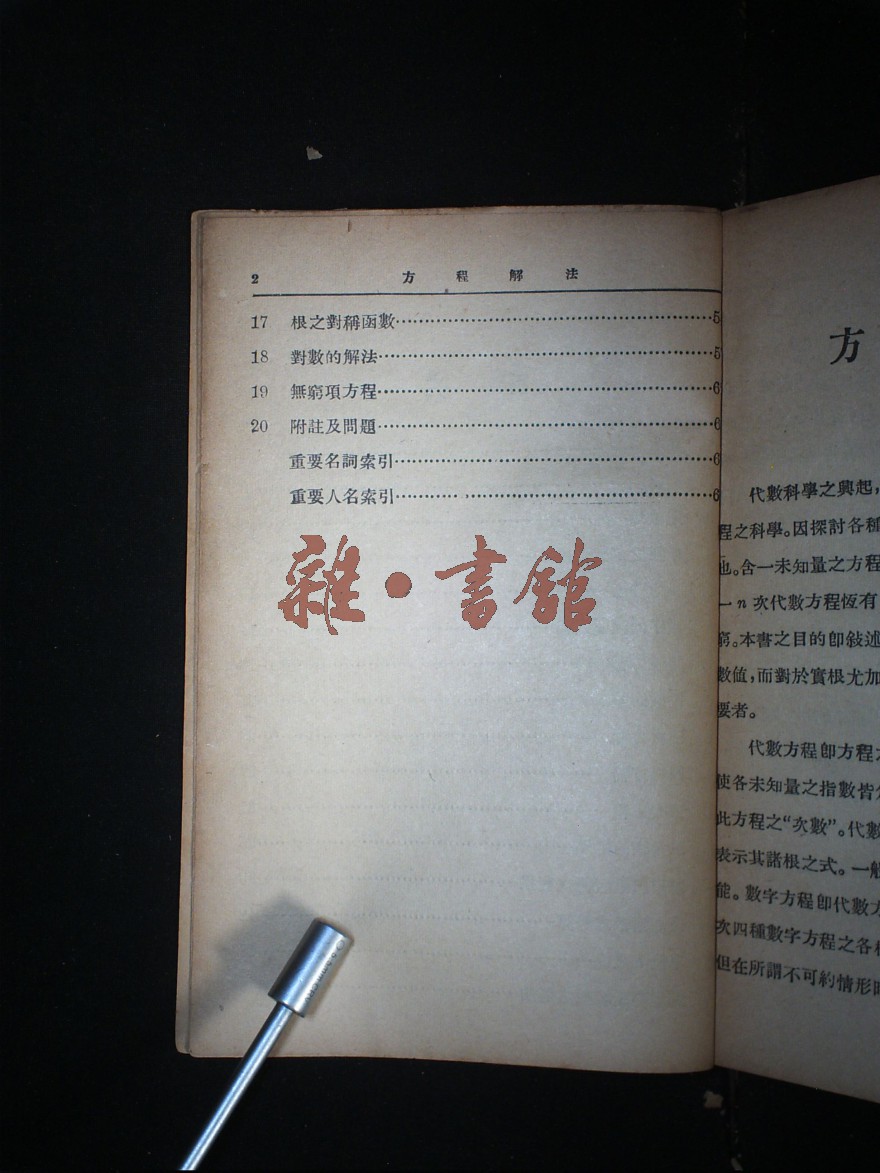 2 方程解法
17 根之對稱函數……5
18 對數的解法……5
19 無窮項方程……6
20 附註及問題……6
重要名詞索引……6
重要人名索引……6
雜·書館
方
代數科學之興起，
程之科學。因探討各種
也。含一未知量之方程
一 n 次代數方程恆有
窮。本書之目的卽敍述
數値，而對於實根尤加
要者。
代數方程卽方程之
使各未知量之指數皆
此方程之“次數”。代數
表示其諸根之式。一般
能。數字方程卽代數方
次四種數字方程之各
但在所謂不可約情形